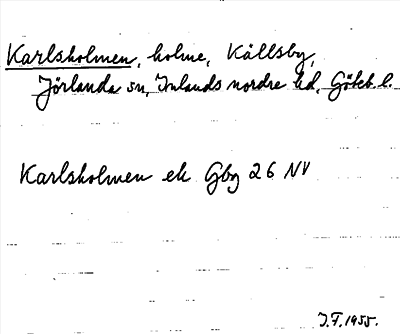 Karlsholmen, holme, Källsby,
Jörlanda sn, Inlands nordre hd, Göteb. l.
Karlsholmen ek Gbg 26 NV
J.F. 1955.